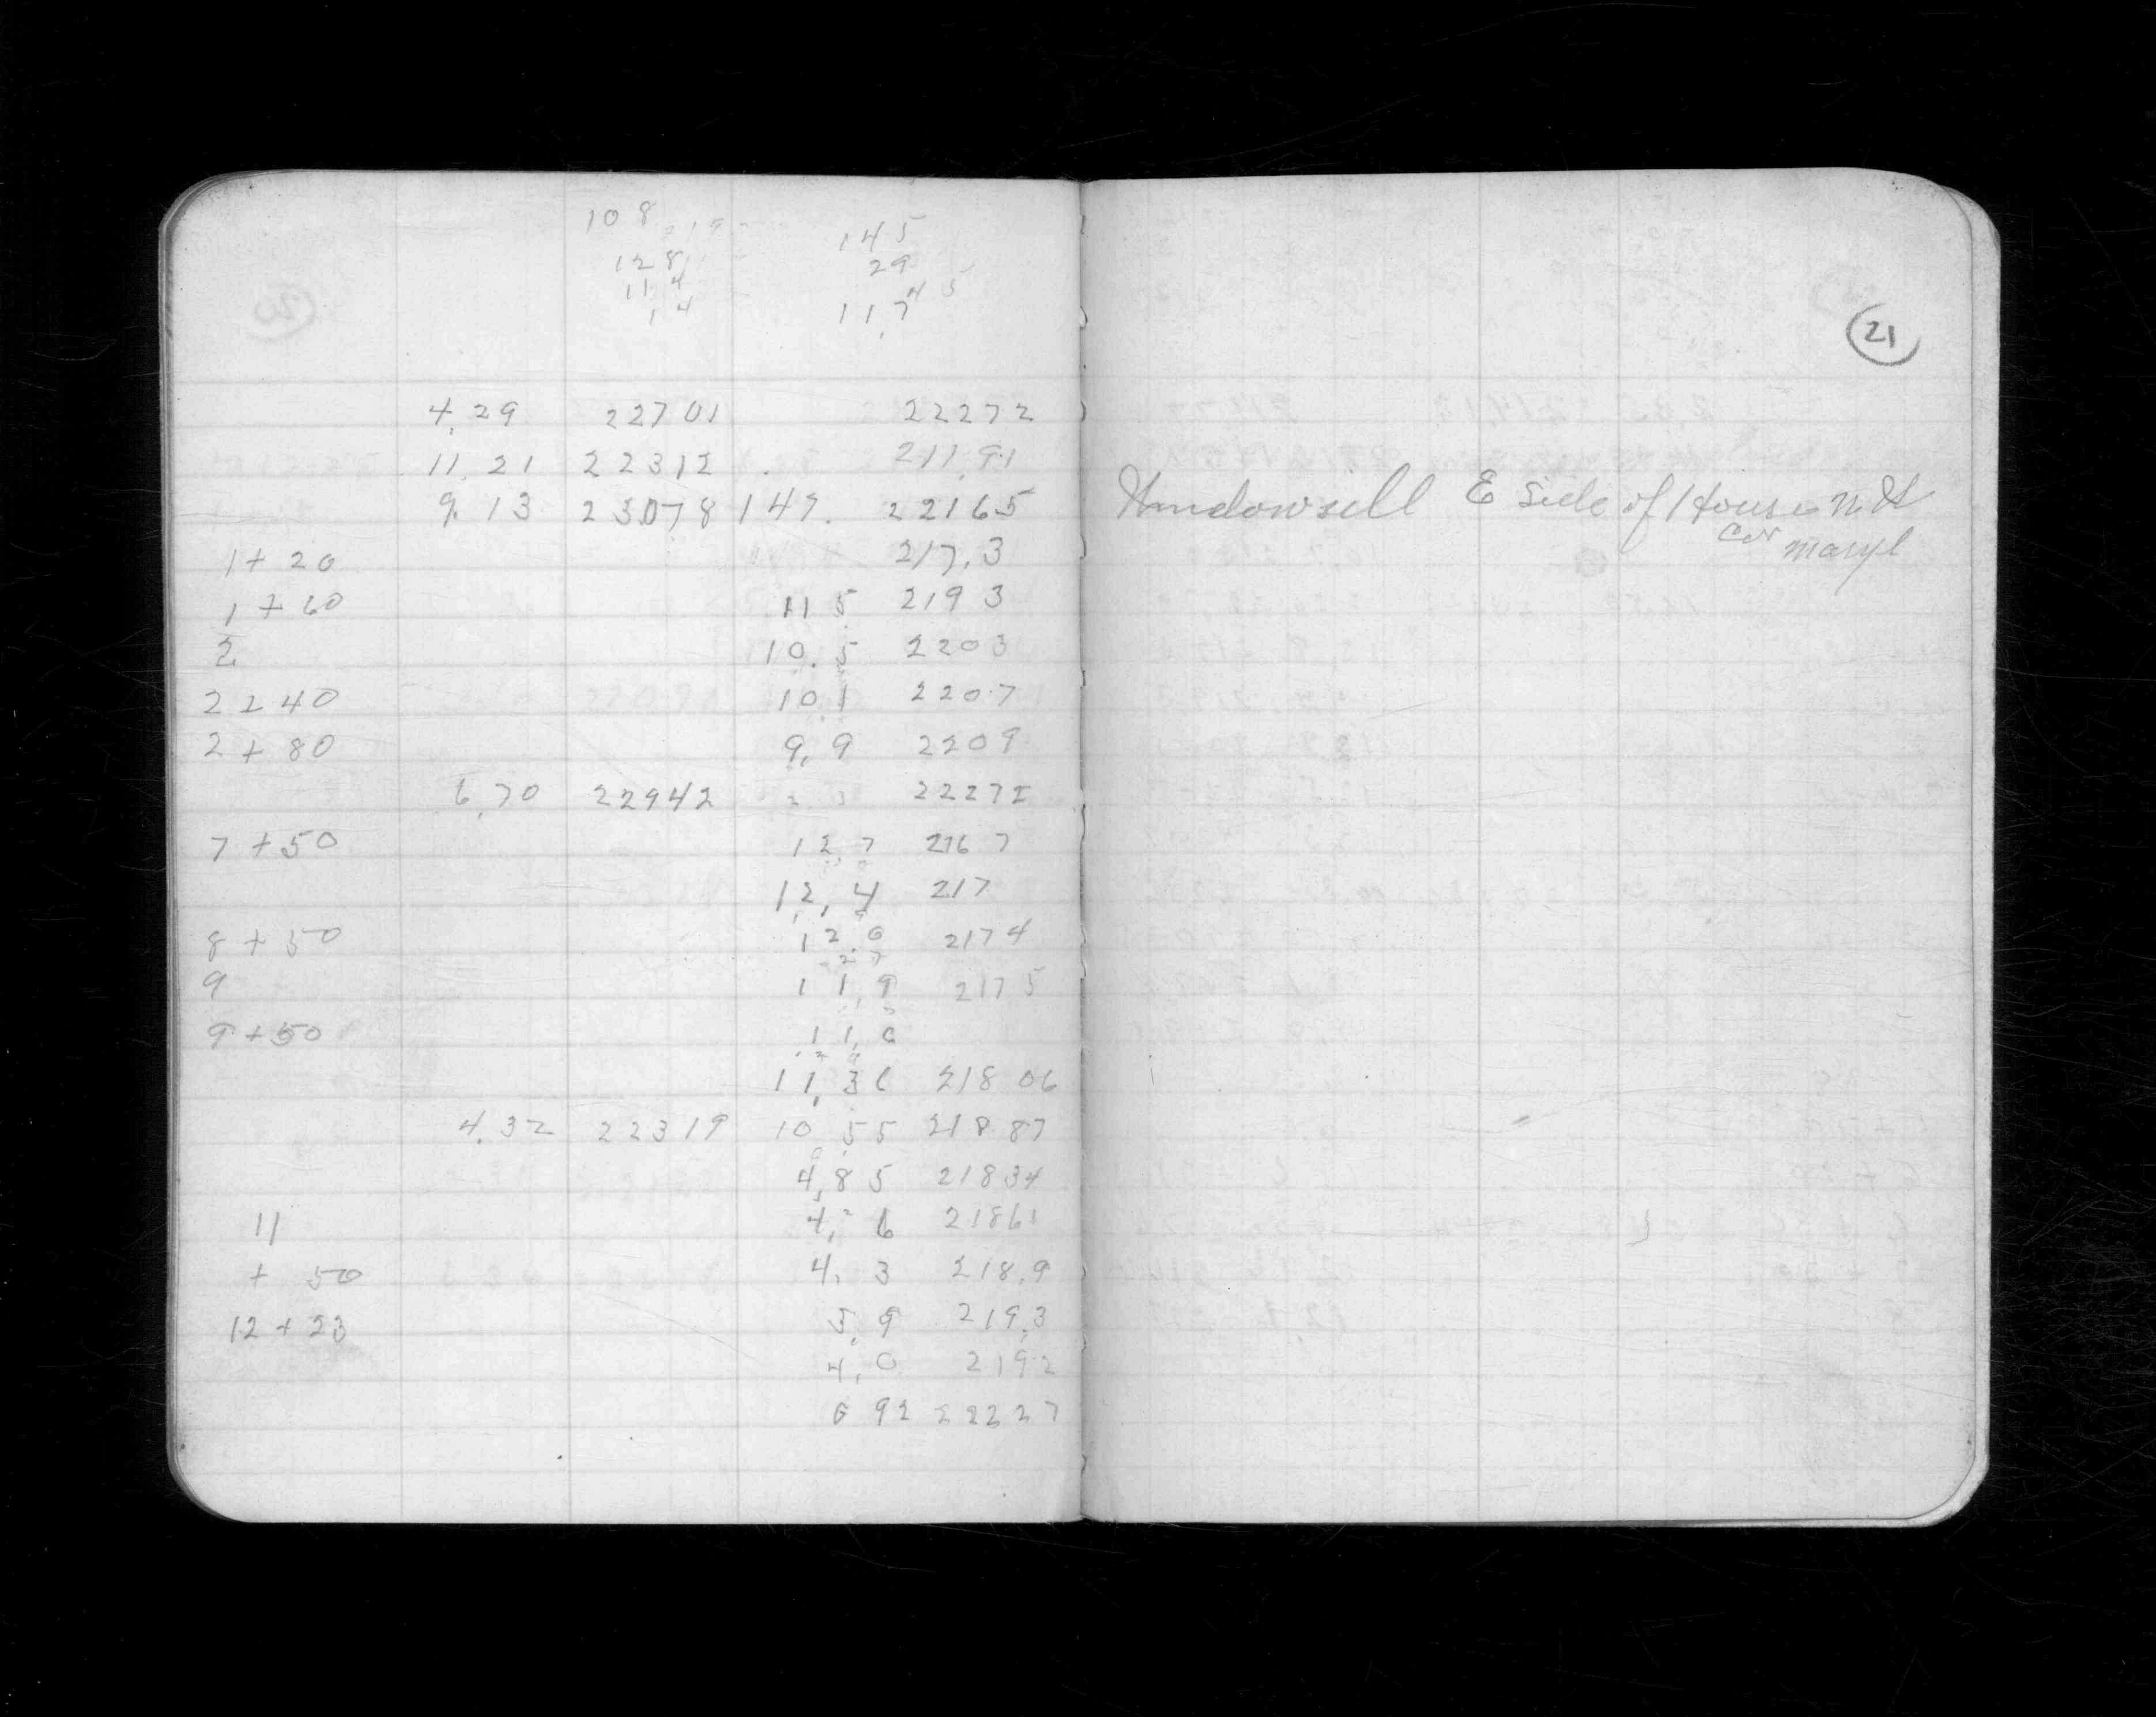 108
145
128
29
11 4
4 5
1 4
11,7
4,29 22701 22272
11,21 22312 211,91
9,13 23078 147. 22165
1+20 217,3
1+60 11 5 2193
2 10.5 2203
2+40 10,1 220.7
2+80 9,9 2209
6,70 22942 22272
7+50 12,7 2167
12,4 217
8+50 12.0 2174
9 11,9 2175
9+50 11,6
11,36 218 06
4,32 22319 10,55 218.87
4,85 21834
11 4, 6 21861
+ 50 4, 3 218,9
12+23 3,9 219,3
4,0 2192
0 92 22227
21
Windowsill E Side of House N W
Cor